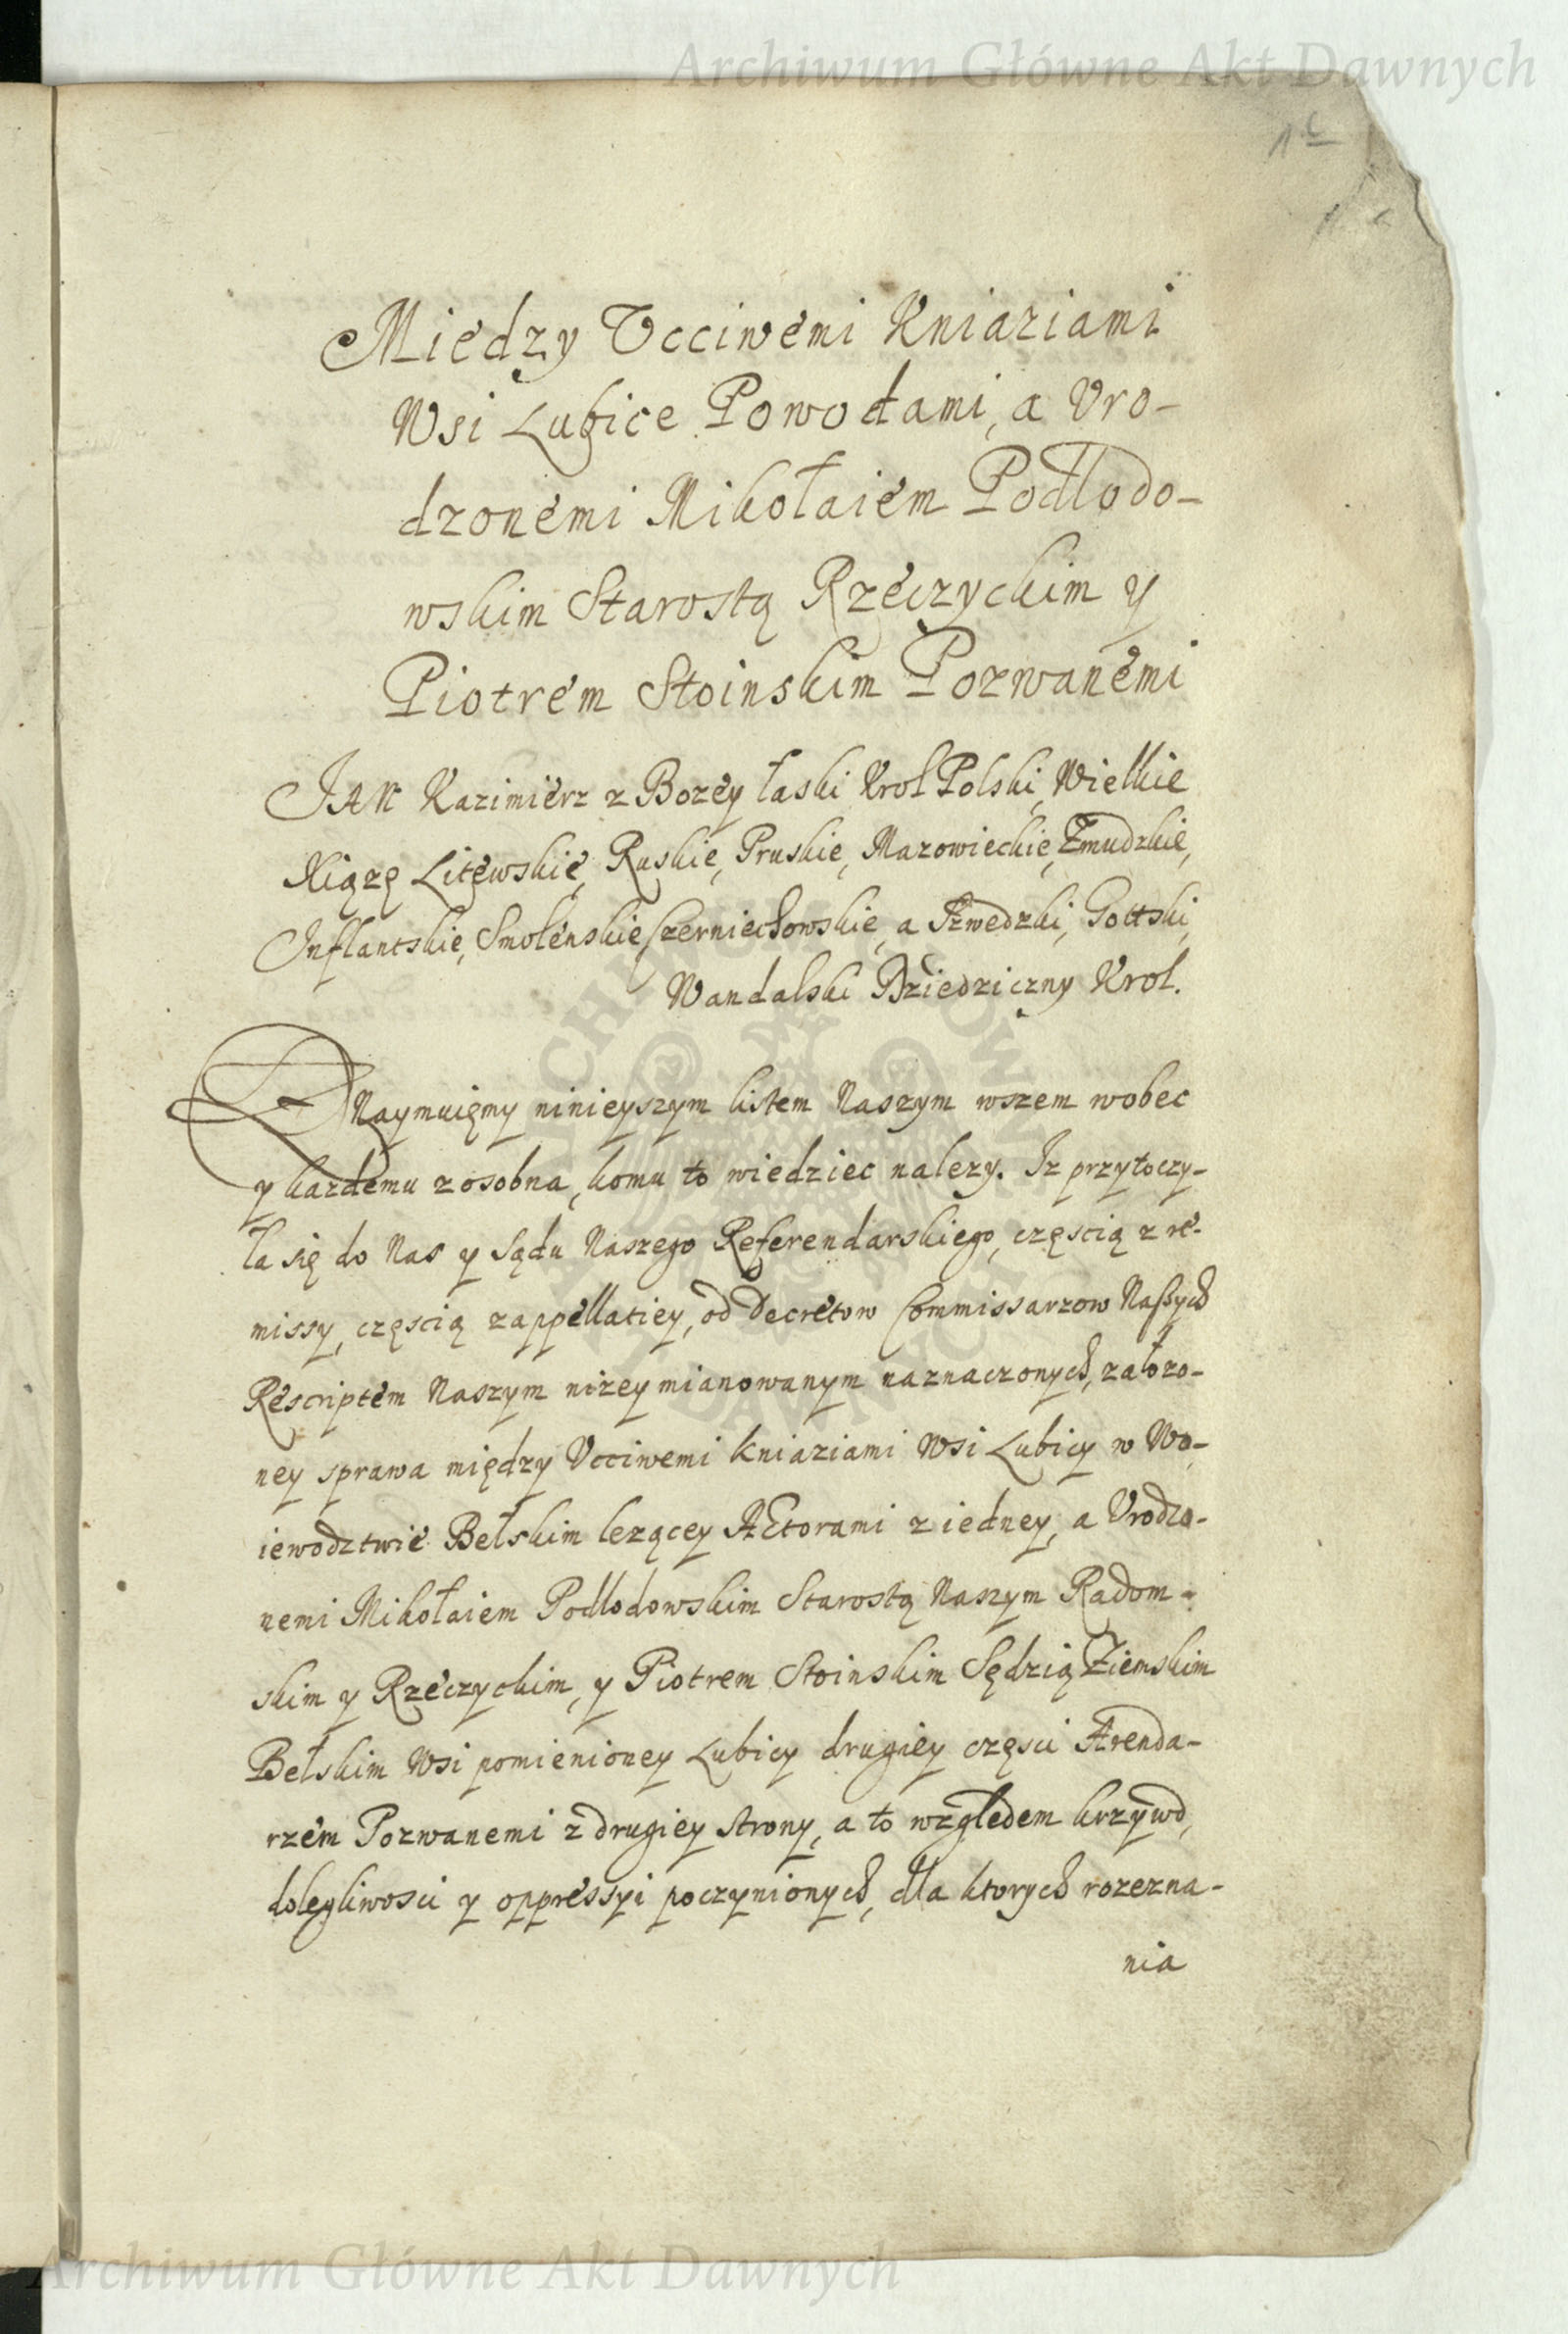 Archiwum Główne Akt Dawnych
Miedzy Vcciwemi Kniaziami
Wsi Lubice Powodami, a Vro-
dzonemi Mikołaiem Podlodo-
wskim Starostą Rzeczyckim y
Piotrem Stoinskim Pozwanemi
JAN Kazimierz z Bozey łaski Krol Polski, Wielkie
Xiązę Litewskie, Ruskie, Pruskie, Mazowieckie, Zmudzkie,
Inflantskie, Smolenskie, Czerniechowskie, a Szwedzki, Gottski,
Wandalski Dziedziczny Krol.
Znaymuięmy ninieyszym listem Naszym wszem wobec
y kazdemu zosobna, komu to wiedziec nalezy. Iz przytoczy-
ła się do Nas y Sądu Naszego Referendarskiego, częscią z re-
missy, częscią zappellatiey, od Decretow Commissarzow Naszych
Rescriptem Naszym nizey mianowanym naznaczonych, załozo-
ney sprawa między Vcciwemi kniaziami Wsi Lubicy w Wo-
iewodztwie Bełskim lezącey Actorami z iedney, a Vrodzo-
nemi Mikołaiem Podlodowskim Starostą Naszym Radom-
skim y Rzeczyckim, y Piotrem Stoinskim Sędzią Ziemskim
Bełskim Wsi pomienioney Lubicy drugiey częsci Arenda-
rzem Pozwanemi z drugiey strony, a to względem krzywd,
dolegliwosci y oppressyi poczynionych, dla ktorych rozezna-
nia
Archiwum Główne Akt Dawnych